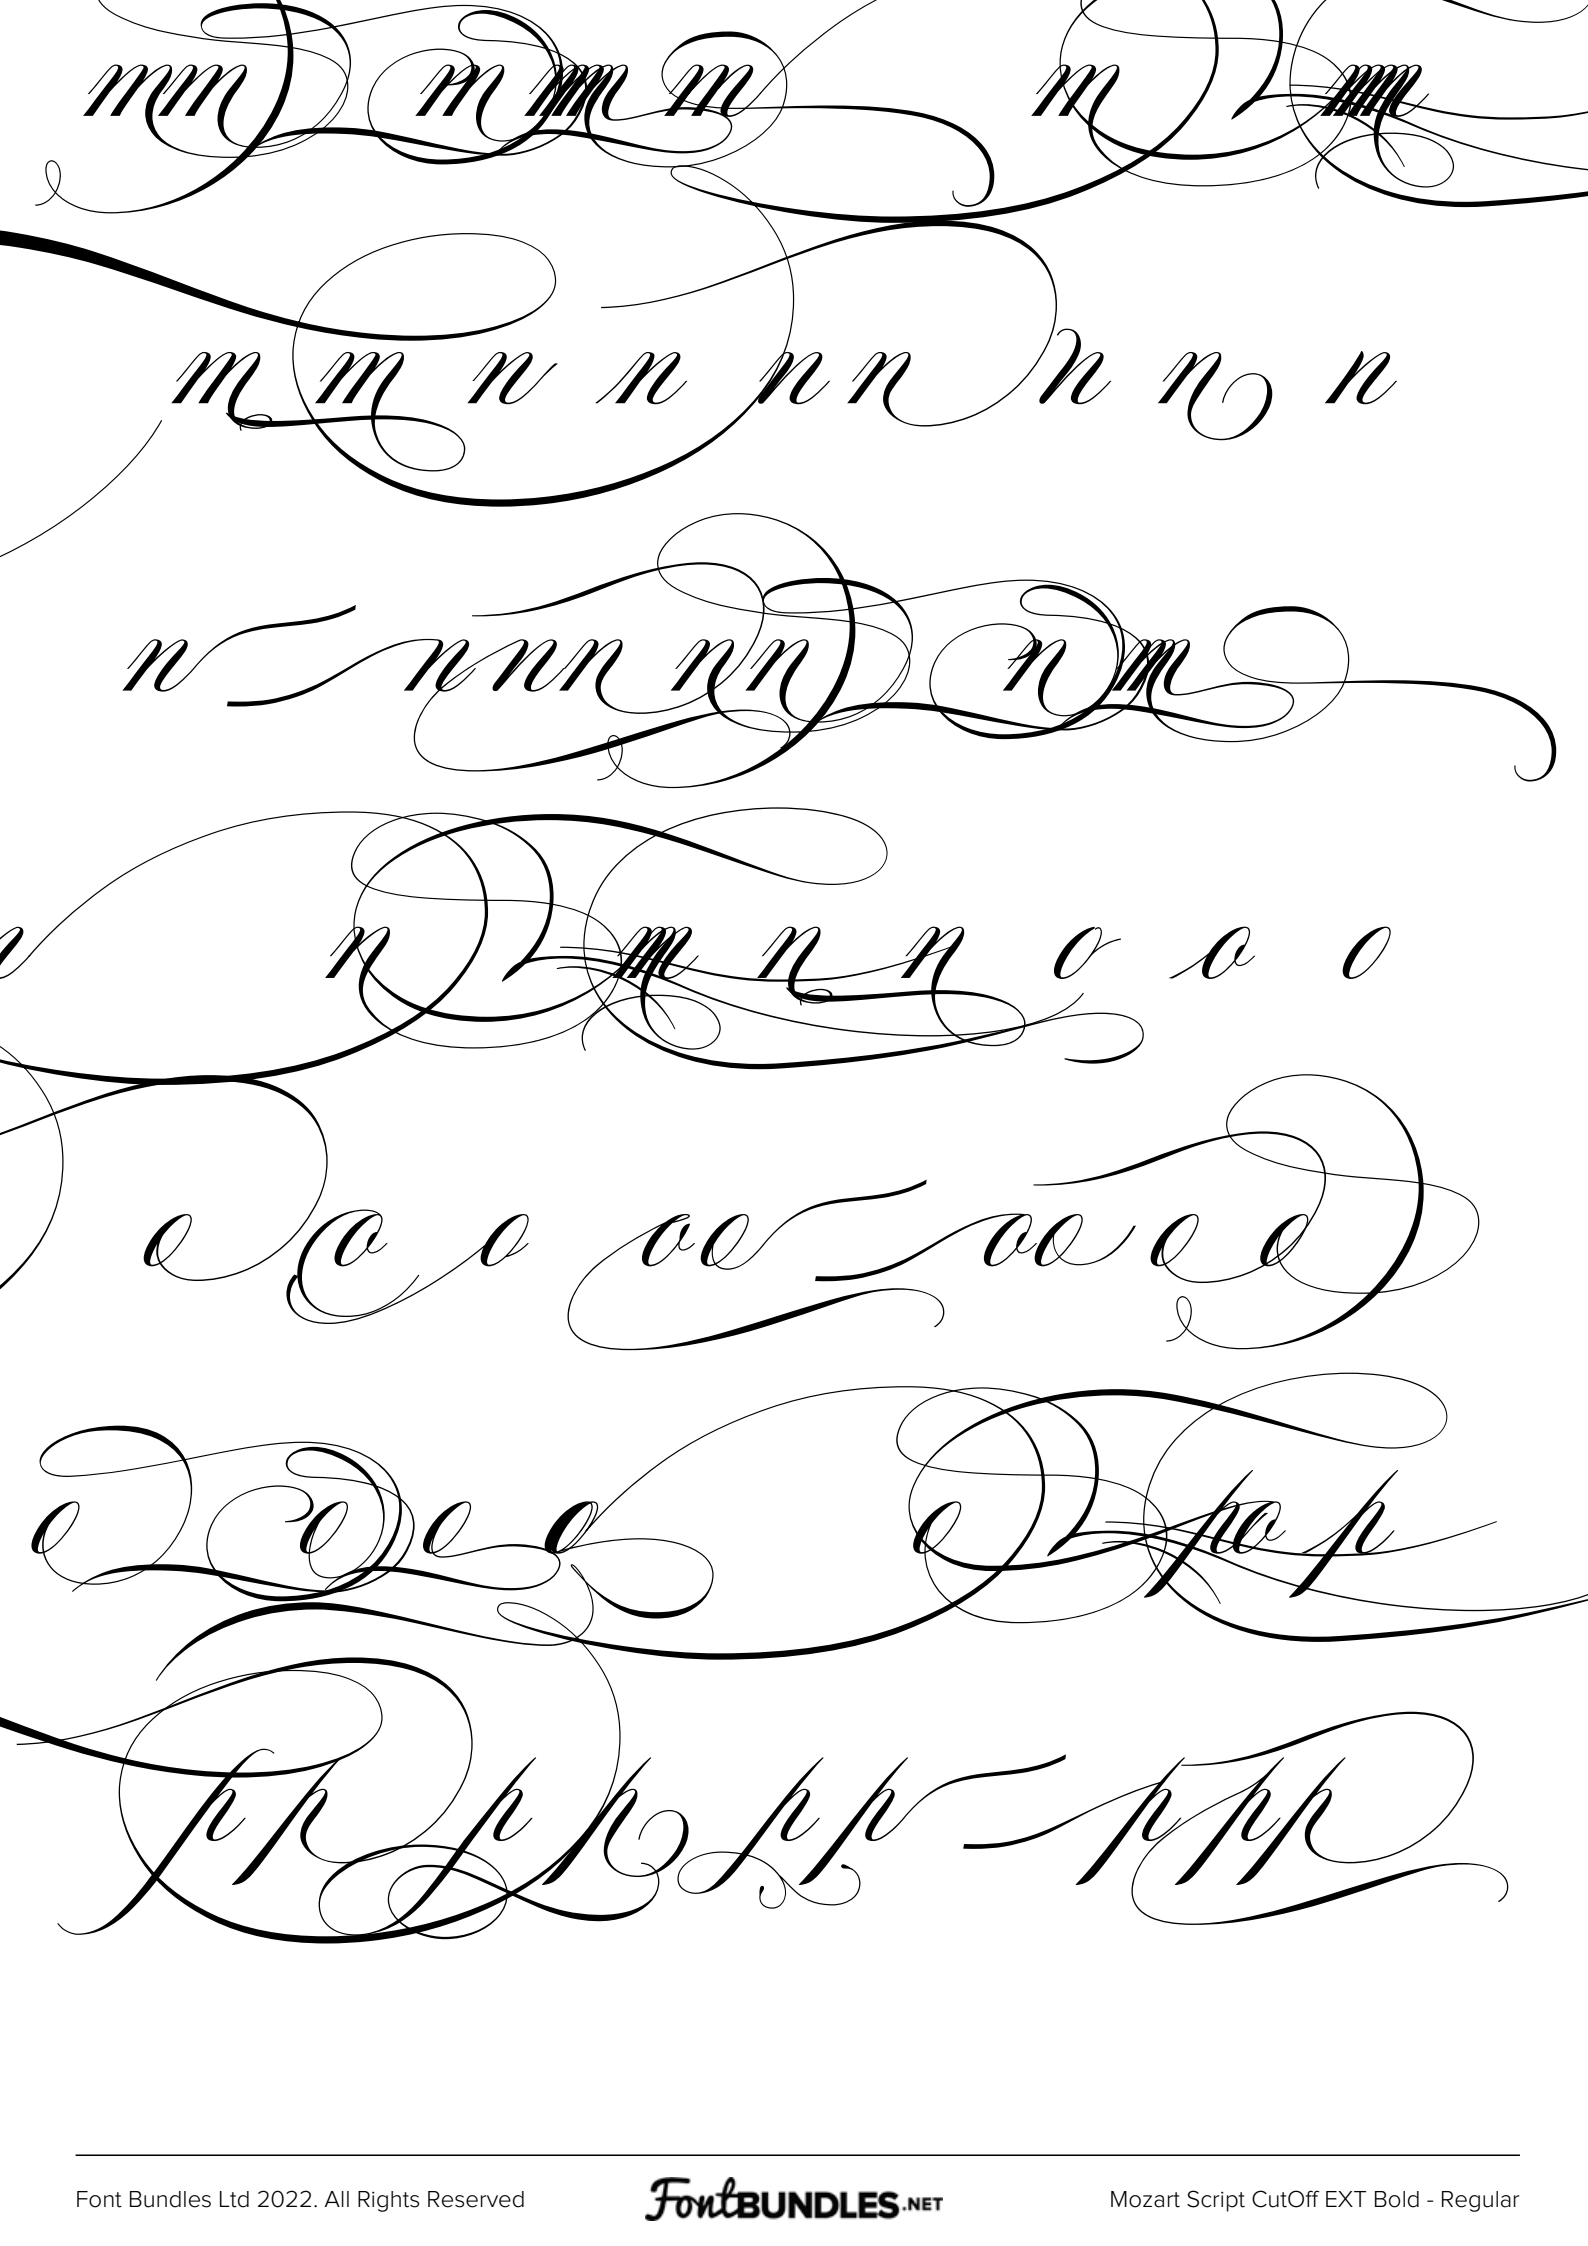 mm m m m m m
m m n n n n n n n
n n n n n n n n m
n n m n n o o o
o o o o o o o o o
o o o o o p o p
p p p p p p p p p
Font Bundles Ltd 2022. All Rights Reserved
FontBUNDLES.NET
Mozart Script CutOff EXT Bold - Regular